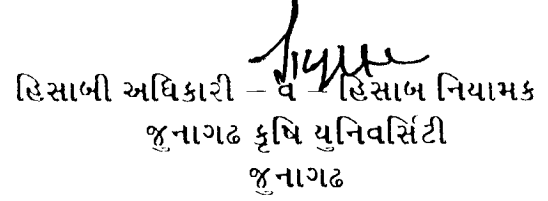 હિસાબી અધિકારી – વ – હિસાબ નિયામક
જુનાગઢ કૃષિ યુનિવર્સિટી
જુનાગઢ